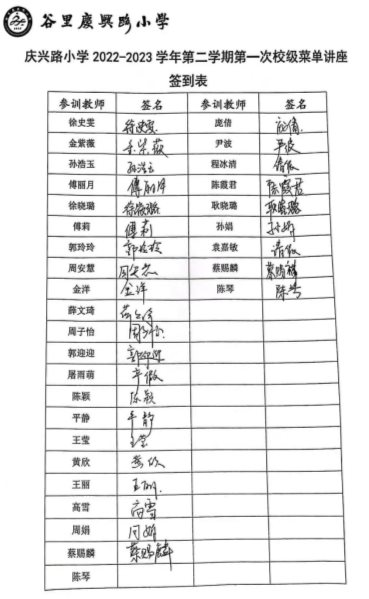 谷里慶興路小学
庆兴路小学 2022-2023 学年第二学期第一次校级菜单讲座
签到表
参训教师 签名 参训教师 签名
徐史雯 徐史雯 庞倩 庞倩
金紫薇 金紫薇 尹波 尹波
孙浩玉 孙浩玉 程冰清 请假
傅丽月 傅丽月 陈霞君 陈霞君
徐晓璐 徐晓璐 耿晓璐 耿晓璐
傅莉 傅莉 孙娟 孙娟
郭玲玲 郭玲玲 袁嘉敏 请假
周安慧 周安慧 蔡赐麟 蔡赐麟
金洋 金洋 陈琴 陈琴
薛文琦
周子怡 周子怡
郭迎迎 郭迎迎
屠雨萌 产假
陈颖 陈颖
平静 平静
王莹 王莹
黄欣 黄欣
王丽 王丽
高雪 高雪
周娟 周娟
蔡赐麟 蔡赐麟
陈琴